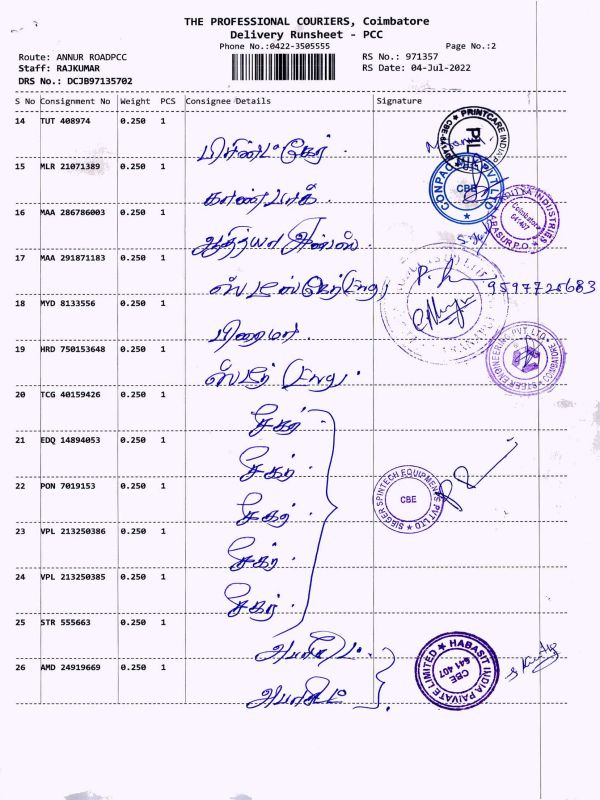 THE PROFESSIONAL COURIERS, Coimbatore
Delivery Runsheet - PCC
Phone No.:0422-3505555
Page No.:2
Route: ANNUR ROADPCC
RS No.: 971357
Staff: RAJKUMAR
RS Date: 04-Jul-2022
DRS No.: DCJB97135702
S No Consignment No Weight PCS Consignee Details Signature
14 TUT 408974 0.250 1
பிரிண்ட் கேர்
PRINTCARE INDIA
PIL
15 MLR 21071389 0.250 1
கான்பாக்
CONPAC PVT LTD
CBE
16 MAA 286786003 0.250 1
INDUSTRIES
Coimbatore
641407
ARASUR P.O.
17 MAA 291871183 0.250 1
(Eng)
9597725683
18 MYD 8133556 0.250 1
பிரைமா
19 HRD 750153648 0.250 1
(Eng)
SIEGER ENGINEERING PVT LTD
COIMBATORE
20 TCG 40159426 0.250 1
சேகர்
21 EDQ 14894053 0.250 1
சேகர்
22 PON 7019153 0.250 1
சேகர்
SIEGER SPINTECH EQUIPMENTS PVT LTD
CBE
23 VPL 213250386 0.250 1
சேகர்
24 VPL 213250385 0.250 1
சேகர்
25 STR 555663 0.250 1
HABASIT INDIA PAIVATE LIMITED
CBE
641 407
26 AMD 24919669 0.250 1